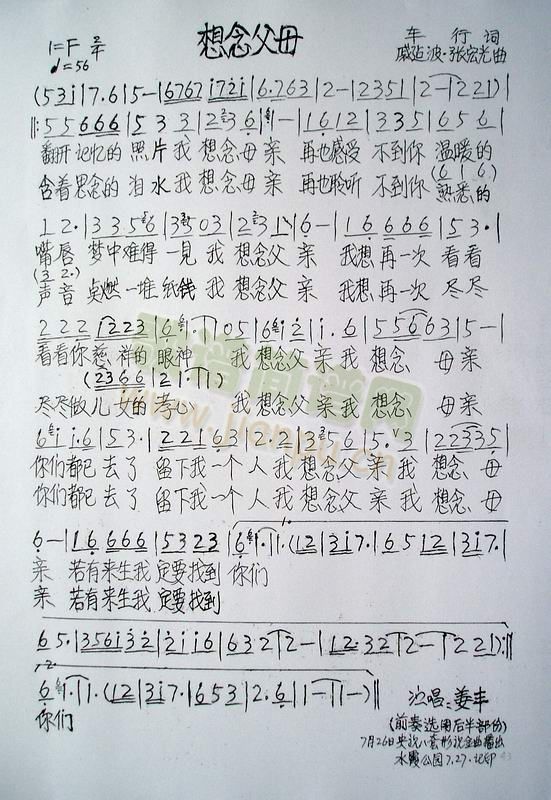 想念父母
1=F 2/4
♩=56
车行词
戚建波·张宏光曲
(5 3 i|7·6|5-|6767 i72i|6·763|2-|2351|2-|221)|
‖:55666|5 3 3|2 3 6|1-|1612|335|656|
翻开记忆的 照片我 想念母亲 再也感受 不到你 温暖的
含着思念的 泪水我 想念母亲 再也聆听 不到你 熟悉的
(616)
12·|3356|3503|231|6-|16666|53·|
嘴唇 梦中难得一见 我 想念父亲 我想再一次 看看
(32·)
声音 点燃一堆纸钱 我 想念父亲 我想再一次 尽尽
222 1223|6 1·|1 05|6 i 2|i·6|55663|5-|
看看你慈祥的 眼神 我 想念父亲 我 想念 母亲
(2366|21·|1)
尽尽做儿女的 孝心 我 想念父亲 我 想念 母亲
6 i i·6|53·|22163|2·2|3 5 6|5·3|22335|
你们都已去了 留下我一个人 我 想念父亲 我 想念 母
你们都已去了 留下我一个人 我 想念父亲 我 想念 母
6-|16666|5323|6 1·|1·(12|3i7·|65 12|3i7·|
亲 若有来生我 定要找到 你们
亲 若有来生我 定要找到
65·|356i32|2ii6|632|2-|12·32|2-|221):‖
6 1·|1·(12|3i7·|653|2·6|1-|1-)‖
你们
演唱:姜丰
(前奏选用后半部份)
水霞公园7.27.记印